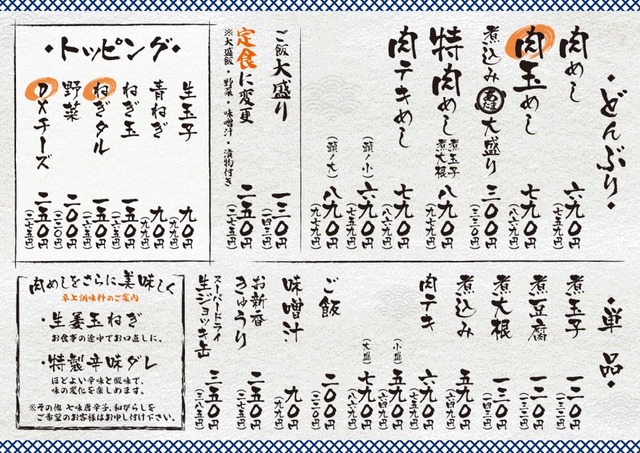 ・どんぶり・
肉めし 六九〇円 (七五九円)
肉玉めし 七九〇円 (八六九円)
煮込み 大盛り 三〇〇円 (三三〇円)
特肉めし 煮玉子 煮大根 八九〇円 (九七九円)
肉テキめし 七九〇円 (八六九円)
(頭ノ小) 六九〇円 (七五九円)
(頭ノ大) 八九〇円 (九七九円)
ご飯大盛り 一三〇円 (一四三円)
定食に変更 二五〇円 (二七五円)
※大盛飯・野菜・味噌汁・漬物付き
・トッピング・
生玉子 九〇円 (九九円)
青ねぎ 九〇円 (九九円)
ねぎ玉 一五〇円 (一六五円)
ねぎタル 一五〇円 (一六五円)
野菜 二〇〇円 (二二〇円)
DXチーズ 二五〇円 (二七五円)
・単品・
煮玉子 一二〇円 (一三二円)
煮豆腐 一二〇円 (一三二円)
煮大根 一三〇円 (一四三円)
煮込み 五九〇円 (六四九円)
肉テキ 六九〇円 (七五九円)
(小盛) 五九〇円 (六四九円)
(大盛) 七九〇円 (八六九円)
ご飯 二〇〇円 (二二〇円)
味噌汁 九〇円 (九九円)
お新香
きゅうり 二五〇円 (二七五円)
スーパードライ
生ジョッキ缶 三五〇円 (三八五円)
肉めしをさらに美味しく
卓上調味料のご案内
・生姜玉ねぎ
お食事の途中でお口直しに。
・特製辛味ダレ
ほどよい辛味と酸味で、
味の変化を楽しめます。
※その他 七味唐辛子、和がらしを
ご希望のお客様はお申し付け下さい。